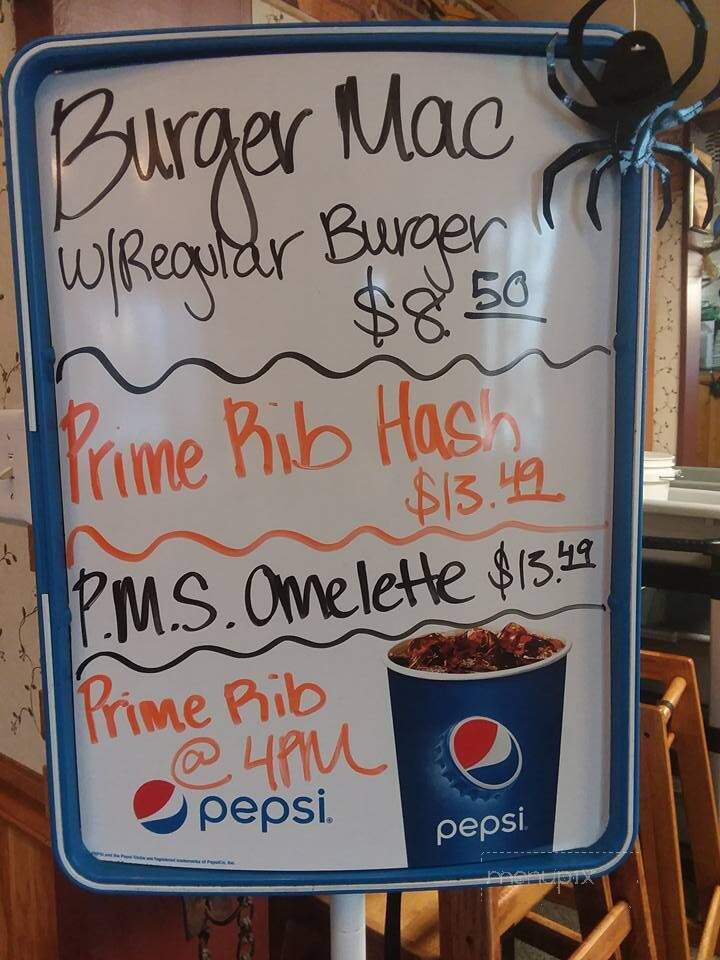 Burger Mac
w/Regular Burger
$8.50
Prime Rib Hash
$13.49
P.M.S. Omelette $13.49
Prime Rib
@ 4PM
pepsi.
pepsi
menupix